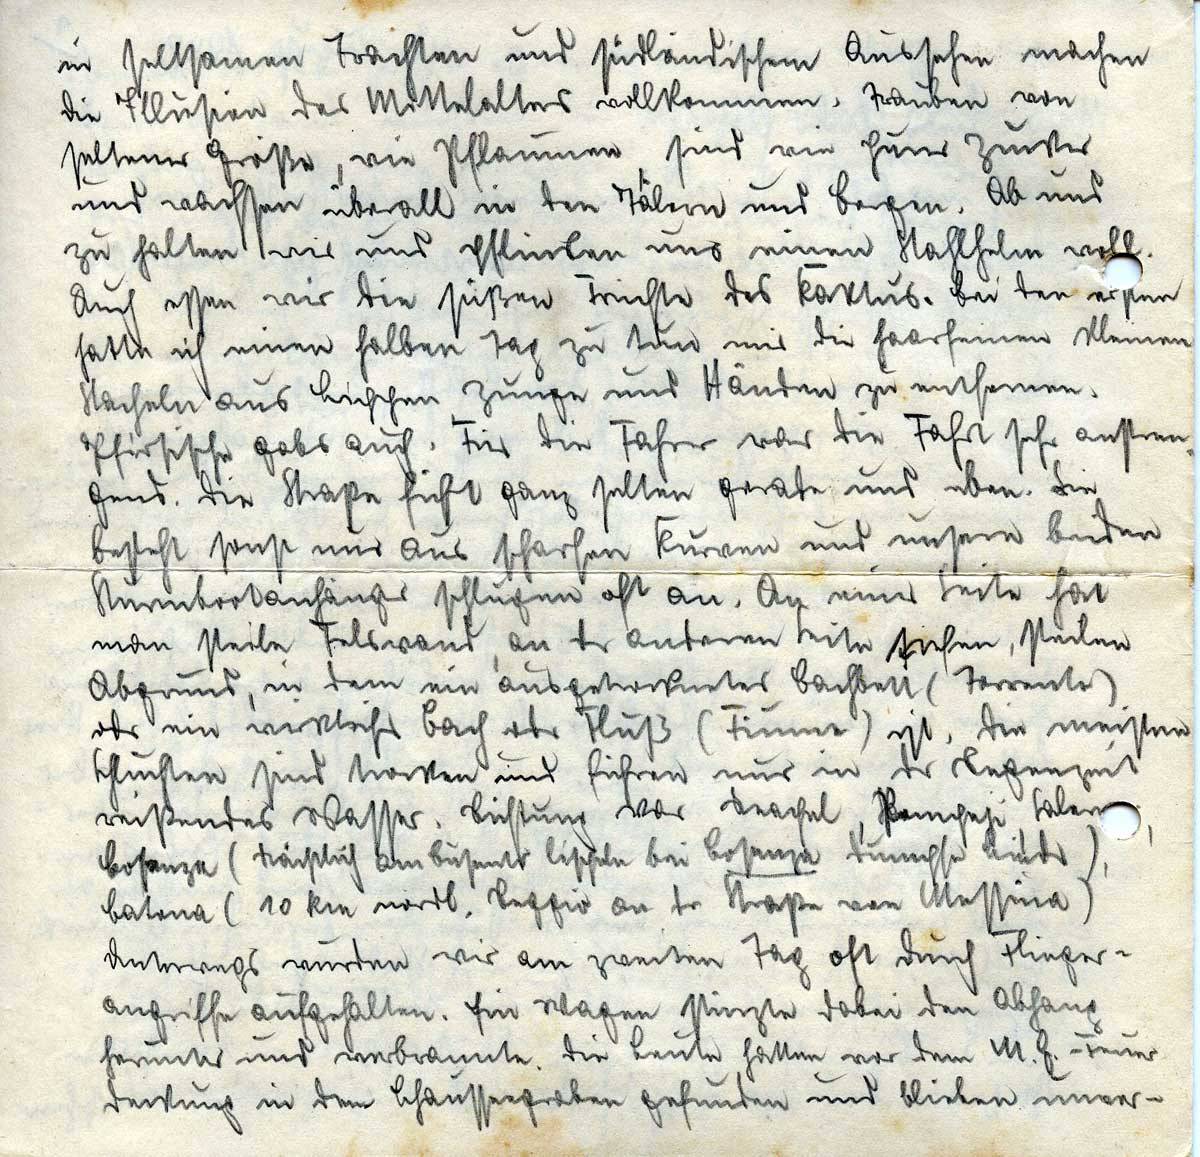 in seltsamen Trachten und südländischem Aussehen machen
die Illusion des Mittelalters vollkommen. Trauben von
seltener Größe, wie Pflaumen, sind wie purer Zucker
und wachsen überall in den Tälern und Bergen. Ab und
zu halten wir und pflücken uns einen Stahlhelm voll.
Auch essen wir die süßen Früchte des Kaktus. Bei den ersten
hatte ich einen halben Tag zu tun mir die haarfeinen kleinen
Stacheln aus Lippen Zunge und Händen zu entfernen.
Pfirsische gabs auch. Für die Fahrer war die Fahrt sehr anstren-
gend. Die Straße führt ganz selten gerade und eben. Sie
besteht sonst nur aus scharfen Kurven und unsere beiden
Sturmbootanhänger schlugen oft an. An einer Seite hat
man steile Felswand, an der anderen Seite tiefen, steilen
Abgrund, in dem ein ausgetrocknetes Bachbett (Torrente)
oder ein wirklicher Bach oder Fluß (Fiume) ist. Die meisten
Schluchten sind trocken und führen nur in der Regenzeit
reißendes Wasser. Richtung war Neapel, Pompeji, Salerno,
Cosenza (nächtlich am Busento lispeln bei Cosenza dumpfe Lieder),
Catona (10 km nördl. Reggio an der Straße von Messina)
Unterwegs wurden wir am zweiten Tag oft durch Flieger-
angriffe aufgehalten. Ein Wagen stürzte dabei den Abhang
herunter und verbrannte. Die Leute hatten vor dem M.G.-Feuer
Deckung in dem Chausseegraben gefunden und blieben unver-